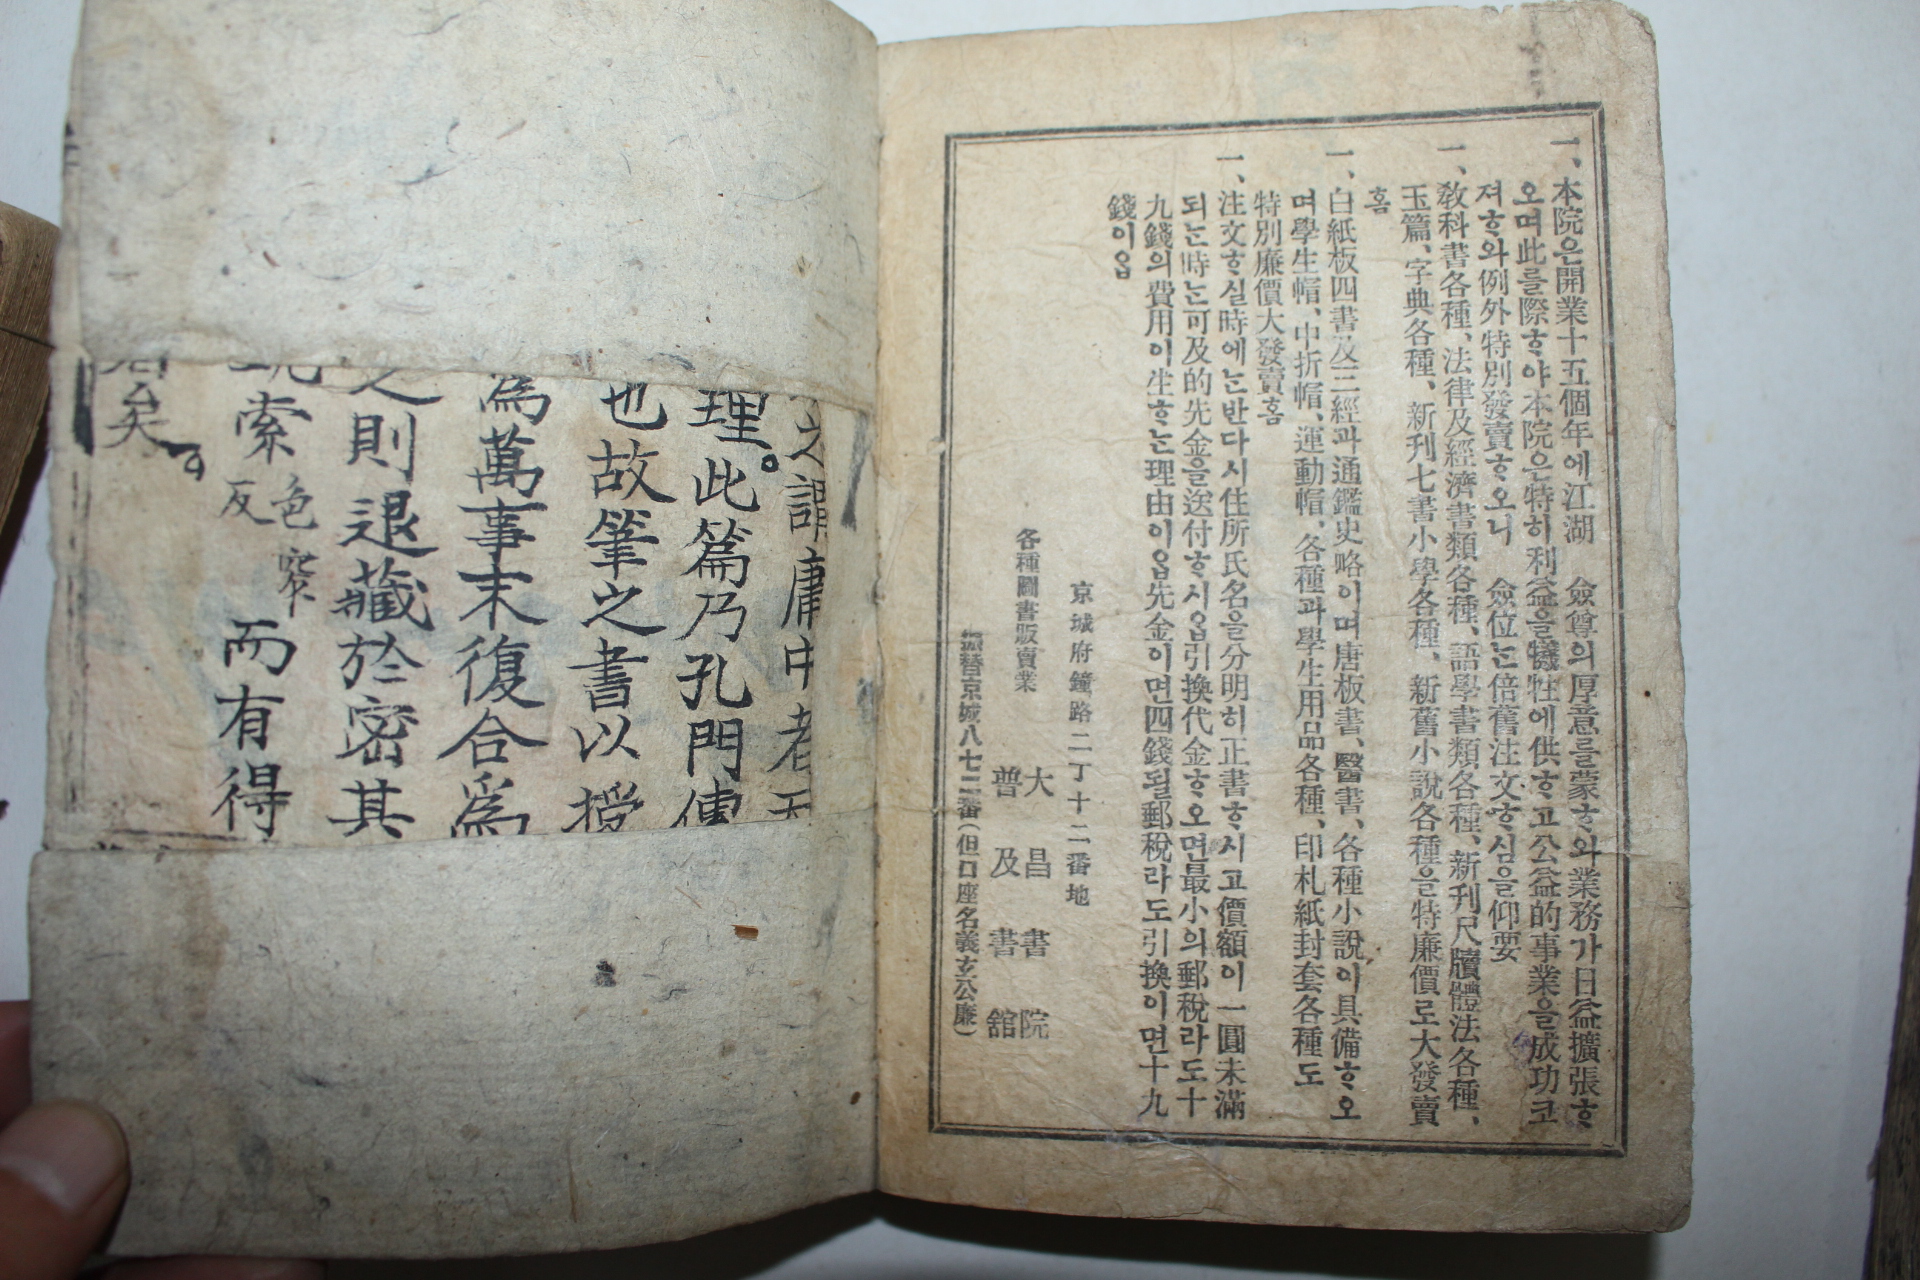 一、本院은開業十五個年에江湖 僉尊의厚意를蒙ᄒᆞ와業務가日益擴張ᄒᆞ
오며此를際ᄒᆞ야本院은特히利益을犧牲에供ᄒᆞ고公益的事業을成功코
져ᄒᆞ와例外特別發賣ᄒᆞ오니 僉位ᄂᆞᆫ倍舊注文ᄒᆞ심을仰要
一、敎科書各種、法律及經濟書類各種、語學書類各種、新刊尺牘體法各種、
玉篇、字典各種、新刊七書小學各種、新舊小說各種을特廉價로大發賣
홈
一、白紙板四書及三經과通鑑史略이며唐板書、醫書、各種小說이具備ᄒᆞ오
며學生帽、中折帽、運動帽、各種과學生用品各種、印札紙封套各種도
特別廉價大發賣홈
一、注文ᄒᆞ실時에ᄂᆞᆫ반다시住所氏名을分明히正書ᄒᆞ시고價額이一圓未滿
되ᄂᆞᆫ時ᄂᆞᆫ可及的先金을送付ᄒᆞ시옵引換代金ᄒᆞ오면最小의郵稅라도十
九錢의費用이生ᄒᆞᄂᆞᆫ理由이옵先金이면四錢될郵稅라도引換이면十九
錢이옵
京城府鐘路二丁十二番地
各種圖書販賣業
大昌書院
普及書舘
振替京城八七二番(但口座名義玄公廉)
之謂庸中者天
理。此篇乃孔門傳
也故筆之書以授
爲萬事末復合爲
之則退藏於密其
索色窄反而有得
矣